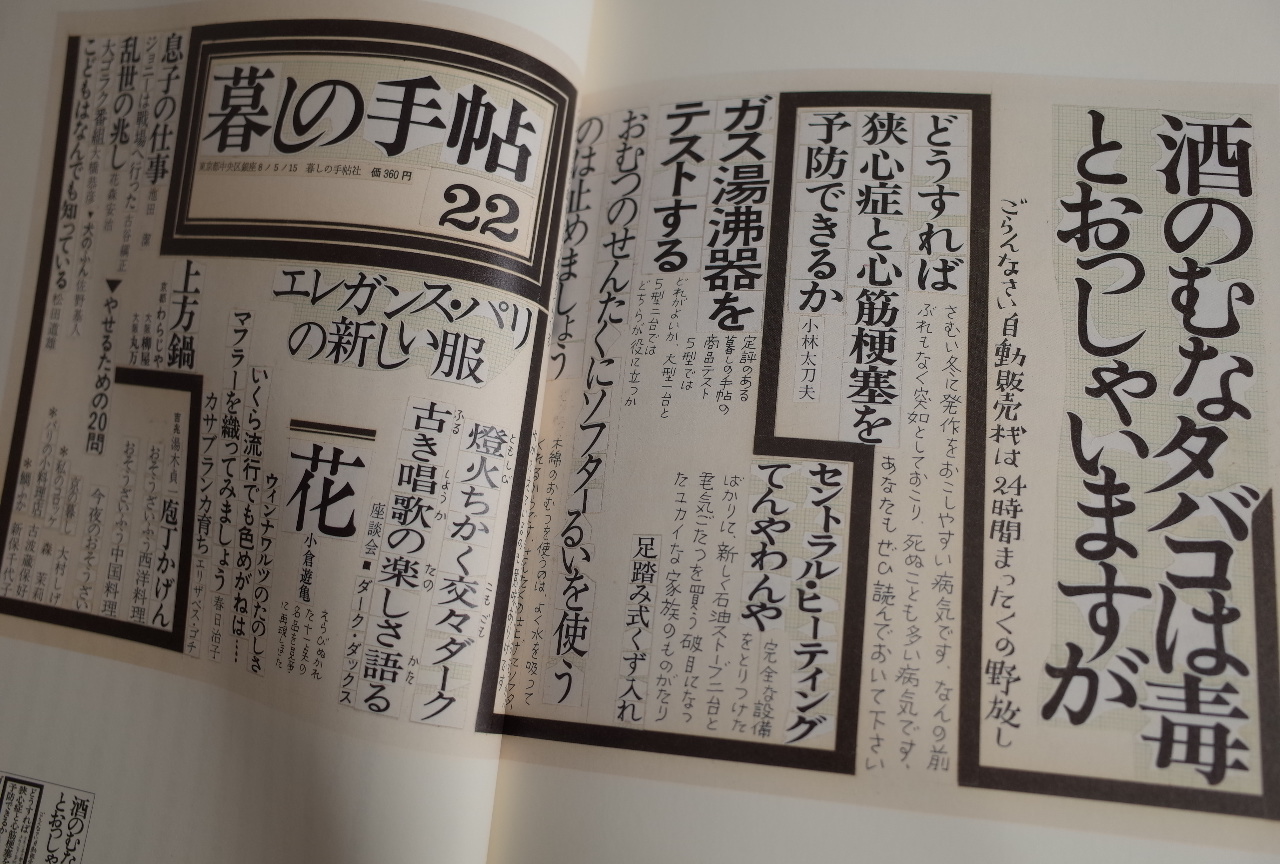 酒のむなタバコは毒
とおっしゃいますが
ごらんなさい自動販売機は24時間まったくの野放し
どうすれば
狭心症と心筋梗塞を
予防できるか
小林太刀夫
さむい冬に発作をおこしやすい病気です、なんの前
ぶれもなく突如としておこり、死ぬことも多い病気です、
あなたもぜひ読んでおいて下さい
セントラル・ヒーティング
てんやわんや
完全な設備
をとりつけた
ばかりに、新しく石油ストーブ二台と
電気ごたつを買う破目になっ
たユカイな家族のものがたり
足踏み式くず入れ
ガス湯沸器を
テストする
定評のある
暮しの手帖の
商品テスト
5型では
どれがよいか、大型二台と
5型二台では
どちらが役に立つか
おむつのせんたくにソフターるいを使う
のは止めましょう
木綿のおむつを使うのは、よく水を吸って
暮しの手帖
22
東京都中央区銀座8/5/15 暮しの手帖社 価360円
エレガンス・パリ
の新しい服
燈火ちかく交々ダーク
ともしび
こもごも
古き唱歌の楽しさ語る
ふる
しょうか
たの
かた
座談会■ダーク・ダックス
花
小倉遊亀
えらびぬかれ
た十二茎の
名品を見事
に再現しました
ウィンナワルツのたのしさ
いくら流行でも色めがねは……
マフラーを織ってみましょう 春日治子
カサブランカ育ち エリザベス・ゴチ
上方鍋
京都 わらじや
大阪 柳屋
大阪 丸万
吉兆 湯木貞一
庖丁かげん
おそうざいふう西洋料理
おそうざいふう中国料理
今夜のおそうざい
京の暮し 大村しげ
*私のコロッケ 森茉莉
*パリの小料理店 古波蔵保好
*鯛ふか 新保千代子
息子の仕事 池田潔
ジョニーは戦場へ行った 古谷綱正
乱世の兆し 花森安治
▼やせるための20問
大ゴラク番組 大橋恭彦▼犬のふん 住野基人
こどもはなんでも知っている 松田道雄
酒のむな
とおっしゃ
どうすれば
狭心症と心筋梗塞を
予防できるか